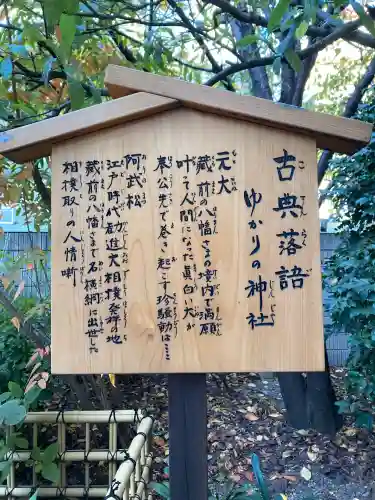 古典落語
ゆかりの神社
元犬
蔵前の八幡さまの境内で満願
叶て人間になった真白い犬が
奉公先で巻き起こす珍騒動は……
阿武松
江戸時代勧進大相撲発祥の地
蔵前の八幡さまで石橋綱に出世した
相撲取りの人情噺